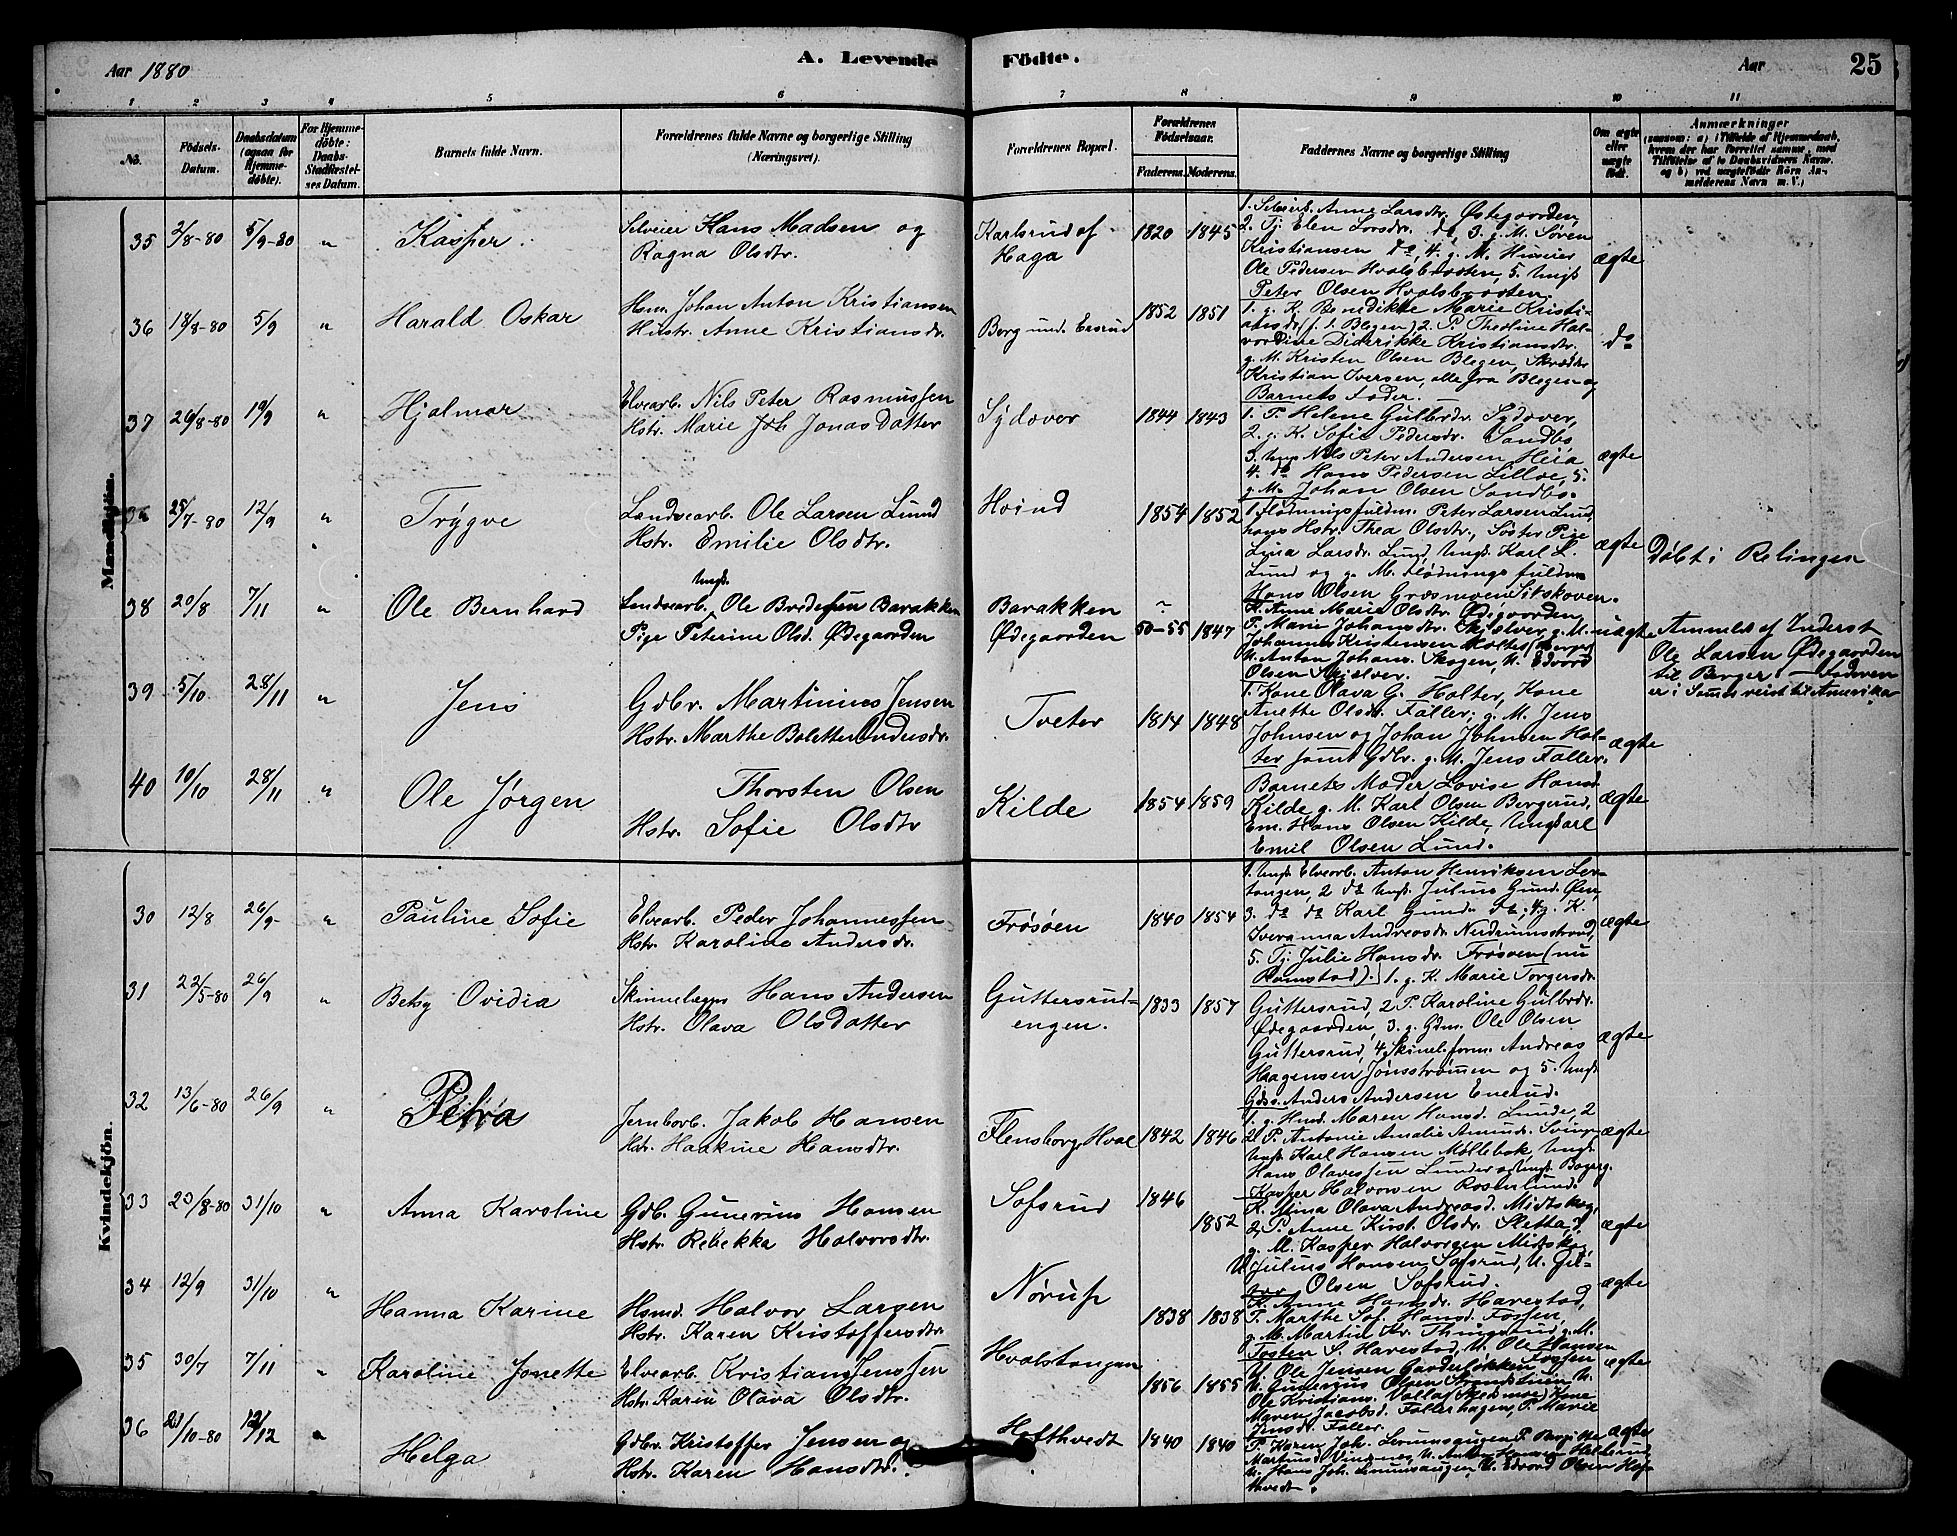 Aar 1880
A. Levende Födte.
Aar
25
1 2 3 4 5 6 7 8 9 10 11
No.
Födsels-Datum.
Daabsdatum (ogsaa for Hjemme-döbte).
For Hjemme-döbte: Daabs-Stadfæstel-ses Datum.
Barnets fulde Navn.
Forældrenes fulde Navne og borgerlige Stilling (Næringsvei).
Forældrenes Bopæl.
Forældrenes Födselsaar.
Faderens. Moderens.
Faddernes Navne og borgerlige Stilling
Om ægte eller uægte födt.
Anmærkninger
(saasom: a) i Tilfælde af Hjemmedaab, hvem der har forrettet samme, med Tilföielse af to Daabsvidners Navne, og b) ved uægtefödte Börn An-melderens Navn m. V.)
Mandkjön.
35 2/8-80 5/9-80 " Kasper.
Selveier Hans Madsen og
Ragna Olsdtr.
Karlsrud af
Haga
1820 1845
1. Selveiert. Anne Larsdtr. Østegaarden,
2. Tj. Elen Larsdr. do, 3. g. M. Søren
Kristiansen do, 4. g. M. Huseier
Ole Pedersen Hvalsbraaten, 5. Ungk
Peter Olsen Hvalsbraaten.
ægte
36 18/8-80 5/9 " Harald Oskar
Hsm. Johan Anton Kristiansen
Hustr. Anne Kristiansdr.
Berg und. Ersrud
1852 1851
1. g. K. Benedikte Marie Kristi-
ansdr (f. s. Blegen) 2. P. Theoline Hal-
vordine Diderikke Kristiansdtr.
g. M. Kristen Olsen Blegen, Skrædder
Kristian Iversen, alle fra Blegen og
Barnets Fader.
do
37 26/8-80 19/9 " Hjalmar
Elvearb. Nils Peter Rasmussen
Hstr. Marie Joh. Jonas Datter
Sydover
1844 1843
1. P. Helene Gulbrdr. Sydover,
2. g. K. Sofie Pedersdr. Sandbo
3. Ungk Nils Peter Andersen Heia
4. do Hans Pedersen Lilloe, 5.
g. M. Johan Olsen Sandbo.
ægte
25/7-80 12/9 " Trygve
Landsearb. Ole Larsen Lund
Hstr. Emilie Olsdtr.
Hvind
1854 1852
1. Flødningsfuldm. Peter Larsen Lund,
hans Hstr. Thea Olsdtr., Søster Pige
Lina Larsdr. Lund, Ungk. Karl L.
Lund og g. M. Flødnings fuldm
Hans Olsen Græsmoen Sitskoven.
ægte
Døbt i Rælingen
38 20/8 7/11 " Ole Bernhard
Ungk.
Landsearb. Ole Bredesen Barakken
Pige Peterine Olsd. Ødegaarden
Barakken
Ødegaarden
~
50-55 1847
K. Anne Marie Olsdtr. Ødegaarden,
P. Marie Johansdtr. Skjelver, g. M.
Johannes Kristensen
U. Anton Johans. Skogen, U. Edvard
Olsen Skjelver.
uægte
Anmeld af Inderst
Ole Larsen Ødegaarden
til Berger. — Faderen
er i Som. reist til Amerika
39 5/10 28/11 " Jens
Gdbr. Martinius Jensen
Hstr. Marthe Bolette Andersdr.
Tveter
1814 1848
1. Kone Olava G. Holter, Kone
Anette Olsdr. Faller; g. M. Jens
Johnsen og Johan Johnsen Hol-
ter samt Gdbr. g. M. Jens Faller.
ægte
40 10/10 28/11 " Ole Jørgen
Thorsten Olsen
Hstr. Sofie Olsdtr
Kilde
1854 1859
Barnets Moder, Lovise Hansd
Kilde, g. M. Karl Olsen Bergerud,
Em. Hans Olsen Kilde, Ungkarl
Emil Olsen Lund.
ægte
Kvindekjön.
30 12/8 26/9 " Pauline Sofie
Elvearb. Peder Johannessen
Hstr. Karoline Andersdr.
Frøsøen
1840 1854
1. Ungk Elvearb. Anton Henriksen Ler-
tangen, 2 do Ungk. Julius Gund. Øen,
3. do do Karl Gunds do; 4g. K.
Iveranna Andreasdr. Nerdrumstrand,
5. Tj. Julie Hansdr. Frøsøen (nu
Ramstad).
ægte
31 22/5-80 26/9 " Betsy Ovidia
Skinnelægger Hans Andersen
Hstr. Olava Olsdatter
Guttersrud-
engen.
1833 1857
1. g. K. Marie Torgersdr.
Guttersrud, 2 P. Karoline Gulbrdr.
Ødegaarden, 3. g. Gdm. Ole Olsen
Guttersrud, 4. Skinel. form. Andreas
Haagensen Jonsstrømmen og 5. Ungk
Gdss. Anders Andersen Enerud.
ægte
32 13/6-80 26/9 " Petra
Jernbarb. Jakob Hansen
Hstr. Haakine Hansdtr.
Flensborg Hval
1842 1846
1. g. Hmd. Maren Hansd. Lunde, 2
P. Antonie Amalie Amunds.
Ungk Karl Hansen Møllebek, Ungk.
Hans Olavessen Lunder og Ungk Bagerg.
Kasper Halvorsen Rosenlund.
ægte
33 23/8-80 31/10 " Anna Karoline
Gdb. Gunerius Hansen
Hstr. Rebekka Halvorsdtr.
Sofsrud
1846
1852
K. Mina Olava Andreasd. Midtskog,
2 P. Anne Kirst. Olsdr. Sletta, 3
g. M. Kasper Halvorsen Midtskog
U Julius Hansen Sofsrud, U.
Olsen Sofsrud.
ægte
34 12/9 31/10 " Hanna Karine
Hsmd. Halvor Larsen
Hstr. Karen Kristoffersdtr.
Nørup
1838 1838
K. Anne Hansdr. Harestad,
P. Marthe Sof. Hansd. Fossen,
g. M. Martin Kr. Thingelund, g. M.
Tosten S. Harestad, U. Ole Hansen
Fossen
ægte
35 30/7 7/11 " Karoline Jonette
Elvearb. Kristian Jenssen
Hstr. Karen Olava Olsdtr.
Hvalstangen
1856 1855
U. Ole Jensen Garderløkken
U. Gunerius Olsen Strandstuen, U.
Ole Kristians. Valla (Skedsmoe) Kone
Maren Jacobsd. Fallerhagen, P. Marie
Jensdr. Faller.
ægte
36 21/10-80 12/12 " Helga
Gdbr. Kristoffer Jensen og
Hstr. Karen Hansdtr.
Hofthvedt
1840 1840
P. Karen Joh. P. Bergitte
Martinsd U. Anton Hansen
U. Hans Joh. U. Edvard Olsen Hof-
thvedt.
ægte